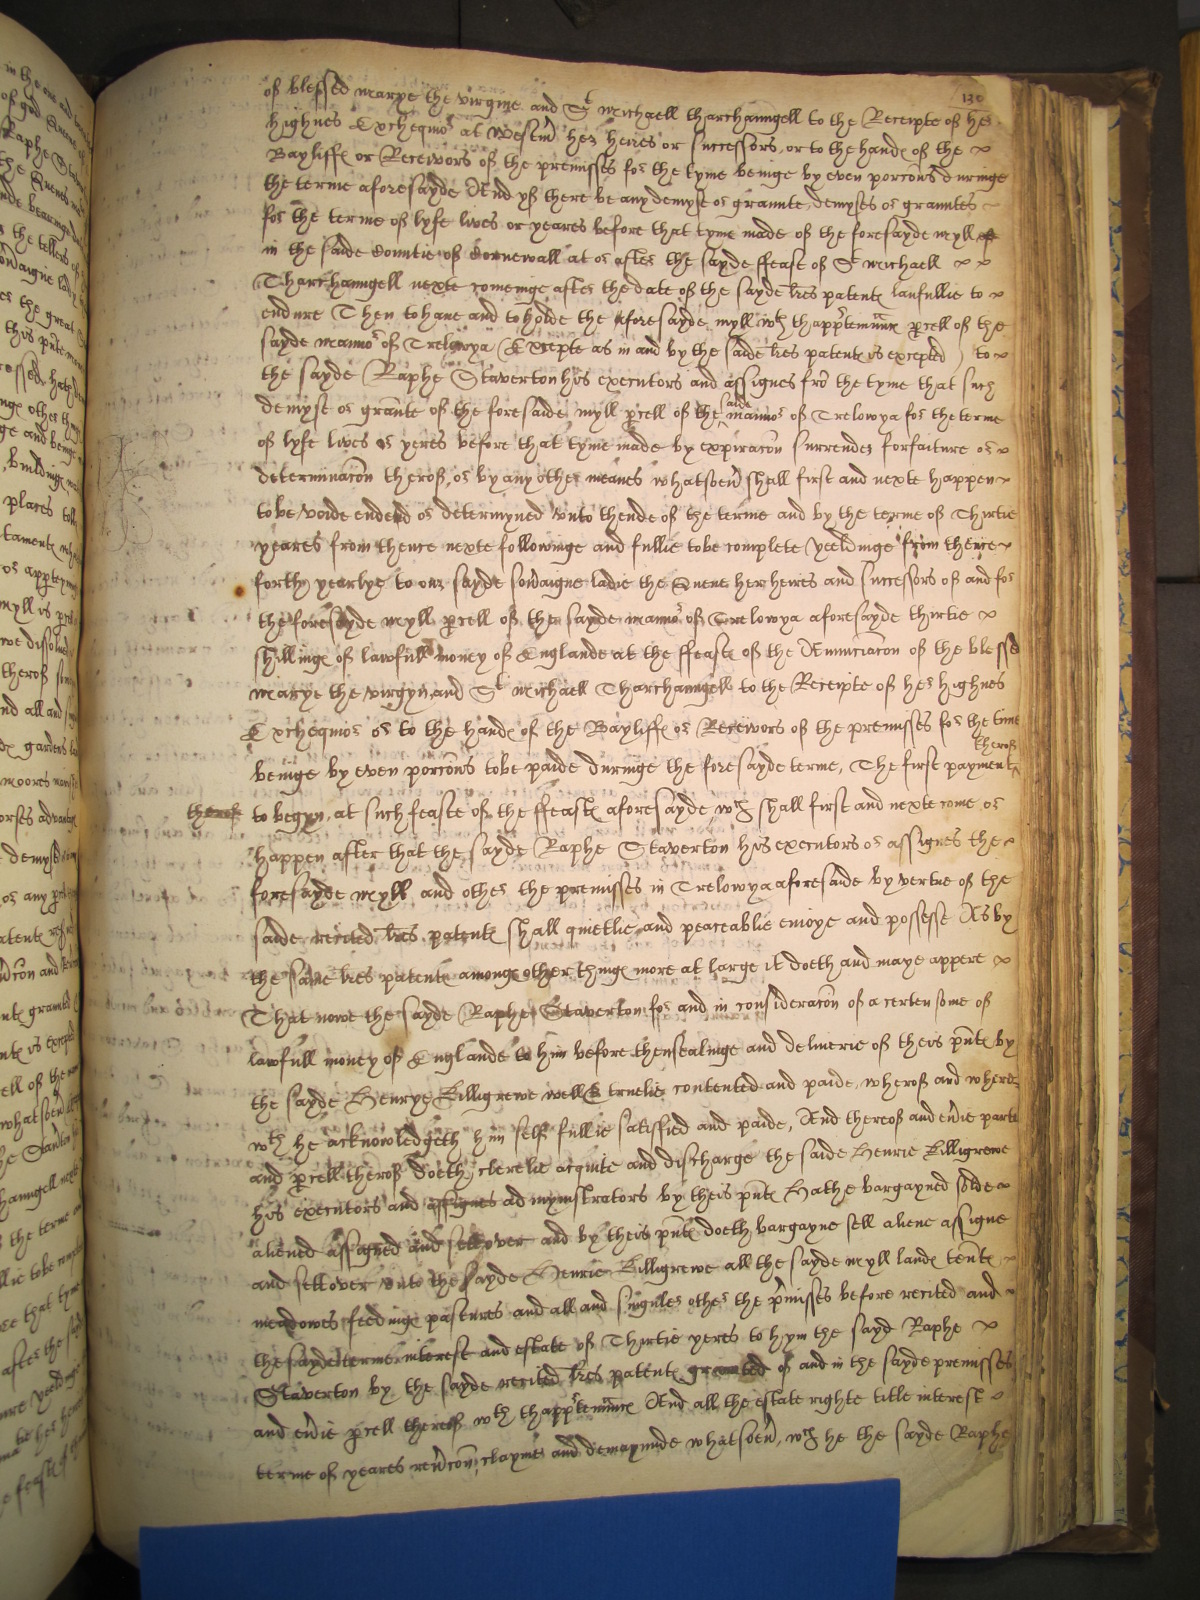 130
of blessed marye the virgine and St michaell tharchanngell to the Receipte of her
highnes Exchequior at westm her heires or successors, or to the hand of the
Bayliffe or Receivors of the premisses for the tyme beinge by even porcons duringe
the terme aforesayde And yf there be any demyse or graunte, demyses or grauntes
for the terme of lyfe lives or yeares before that tyme made of the foresayde myll
in the saide Countie of Cornewall at or after the sayde ffeast of St michaell
Tharchanngell nexte comeinge after the date of the sayde lres patent laufullie to
endure Then to have and to holde the aforesayde myll wth thapptennncs pcell of the
sayde mannor of Trelowya (Excepte as in and by the saide lres patent is excepted) to
the sayde Raphe Staverton his executors and assignes fro the tyme that such
demyse or graunte of the foresaide myll pcell of the saide mannor of Trelowya for the terme
of lyfe lives or yeres before that tyme made by expiracon surrender forfaiture or
determinacon therof, or by any other meanes whatsoevr shall first and nexte happen
to be voide ended or determyned unto thende of the terme and by the terme of Thirtie
yeares from thence nexte followinge and fullie to be complete yeeldinge from thence
forthe yearlye to our sayde sovaigne ladie the Quene her heires and successors of and for
the foresayde myll pcell of the sayde mannor of Trelowya aforesayde thirtie
shillinge of lawfull money of Englande at the ffeaste of the Annunciacon of the blessed
marye the virgyn, and St michaell Tharchanngell to the Receipte of her highnes
Exchequior or to the hand of the Bayliffe or Receivors of the premisses for the time
beinge by even porcons to be paide duringe the foresayde terme, The first payment therof
therof to begyn, at such feaste of the ffeaste aforesayde, wch shall first and nexte come or
happen after that the sayde Raphe Staverton his executors or assignes the
foresayde myll and other the premisses in Trelowya aforesaide by vertue of the
saide recited lres patent shall quietlie and peaceablie enioye and possesse As by
the same lres patent amonge other thinge more at large it doeth and maye appere
That nowe the sayde Raphe Staverton for and in consideracon of a certen some of
lawfull money of Englande to him before thensealinge and deliverie of theis pnte by
the sayde Henrye Killigrewe well & truelie contented and paide, wherof and where
wth he acknowledgeth him self fullie satisfied and paide, And thereof and evrie parte
and pcell therof doeth clerelie acquite and discharge the saide Henrie Killigrewe
his executors and assignes admynistrators by theis pnte Hathe bargayned solde
aliened assigned and sett over and by theis pnte doeth bargayne sell aliene assigne
and sett over unto the sayde Henrie Killigrewe all the sayde myll land tente
meadowes feedinge pastures and all and singuler other the pmisses before recited and
the sayde terme interest and estate of Thirtie yeres to hym the sayd Raphe
Staverton by the sayde recited lres patent graunted of and in the sayde premisses
and evrie pcell thereof wth thapptennnce And all the estate righte title interest
terme of yeares revrcon, clayme and demaynde whatsoevr, wch he the sayde Raphe